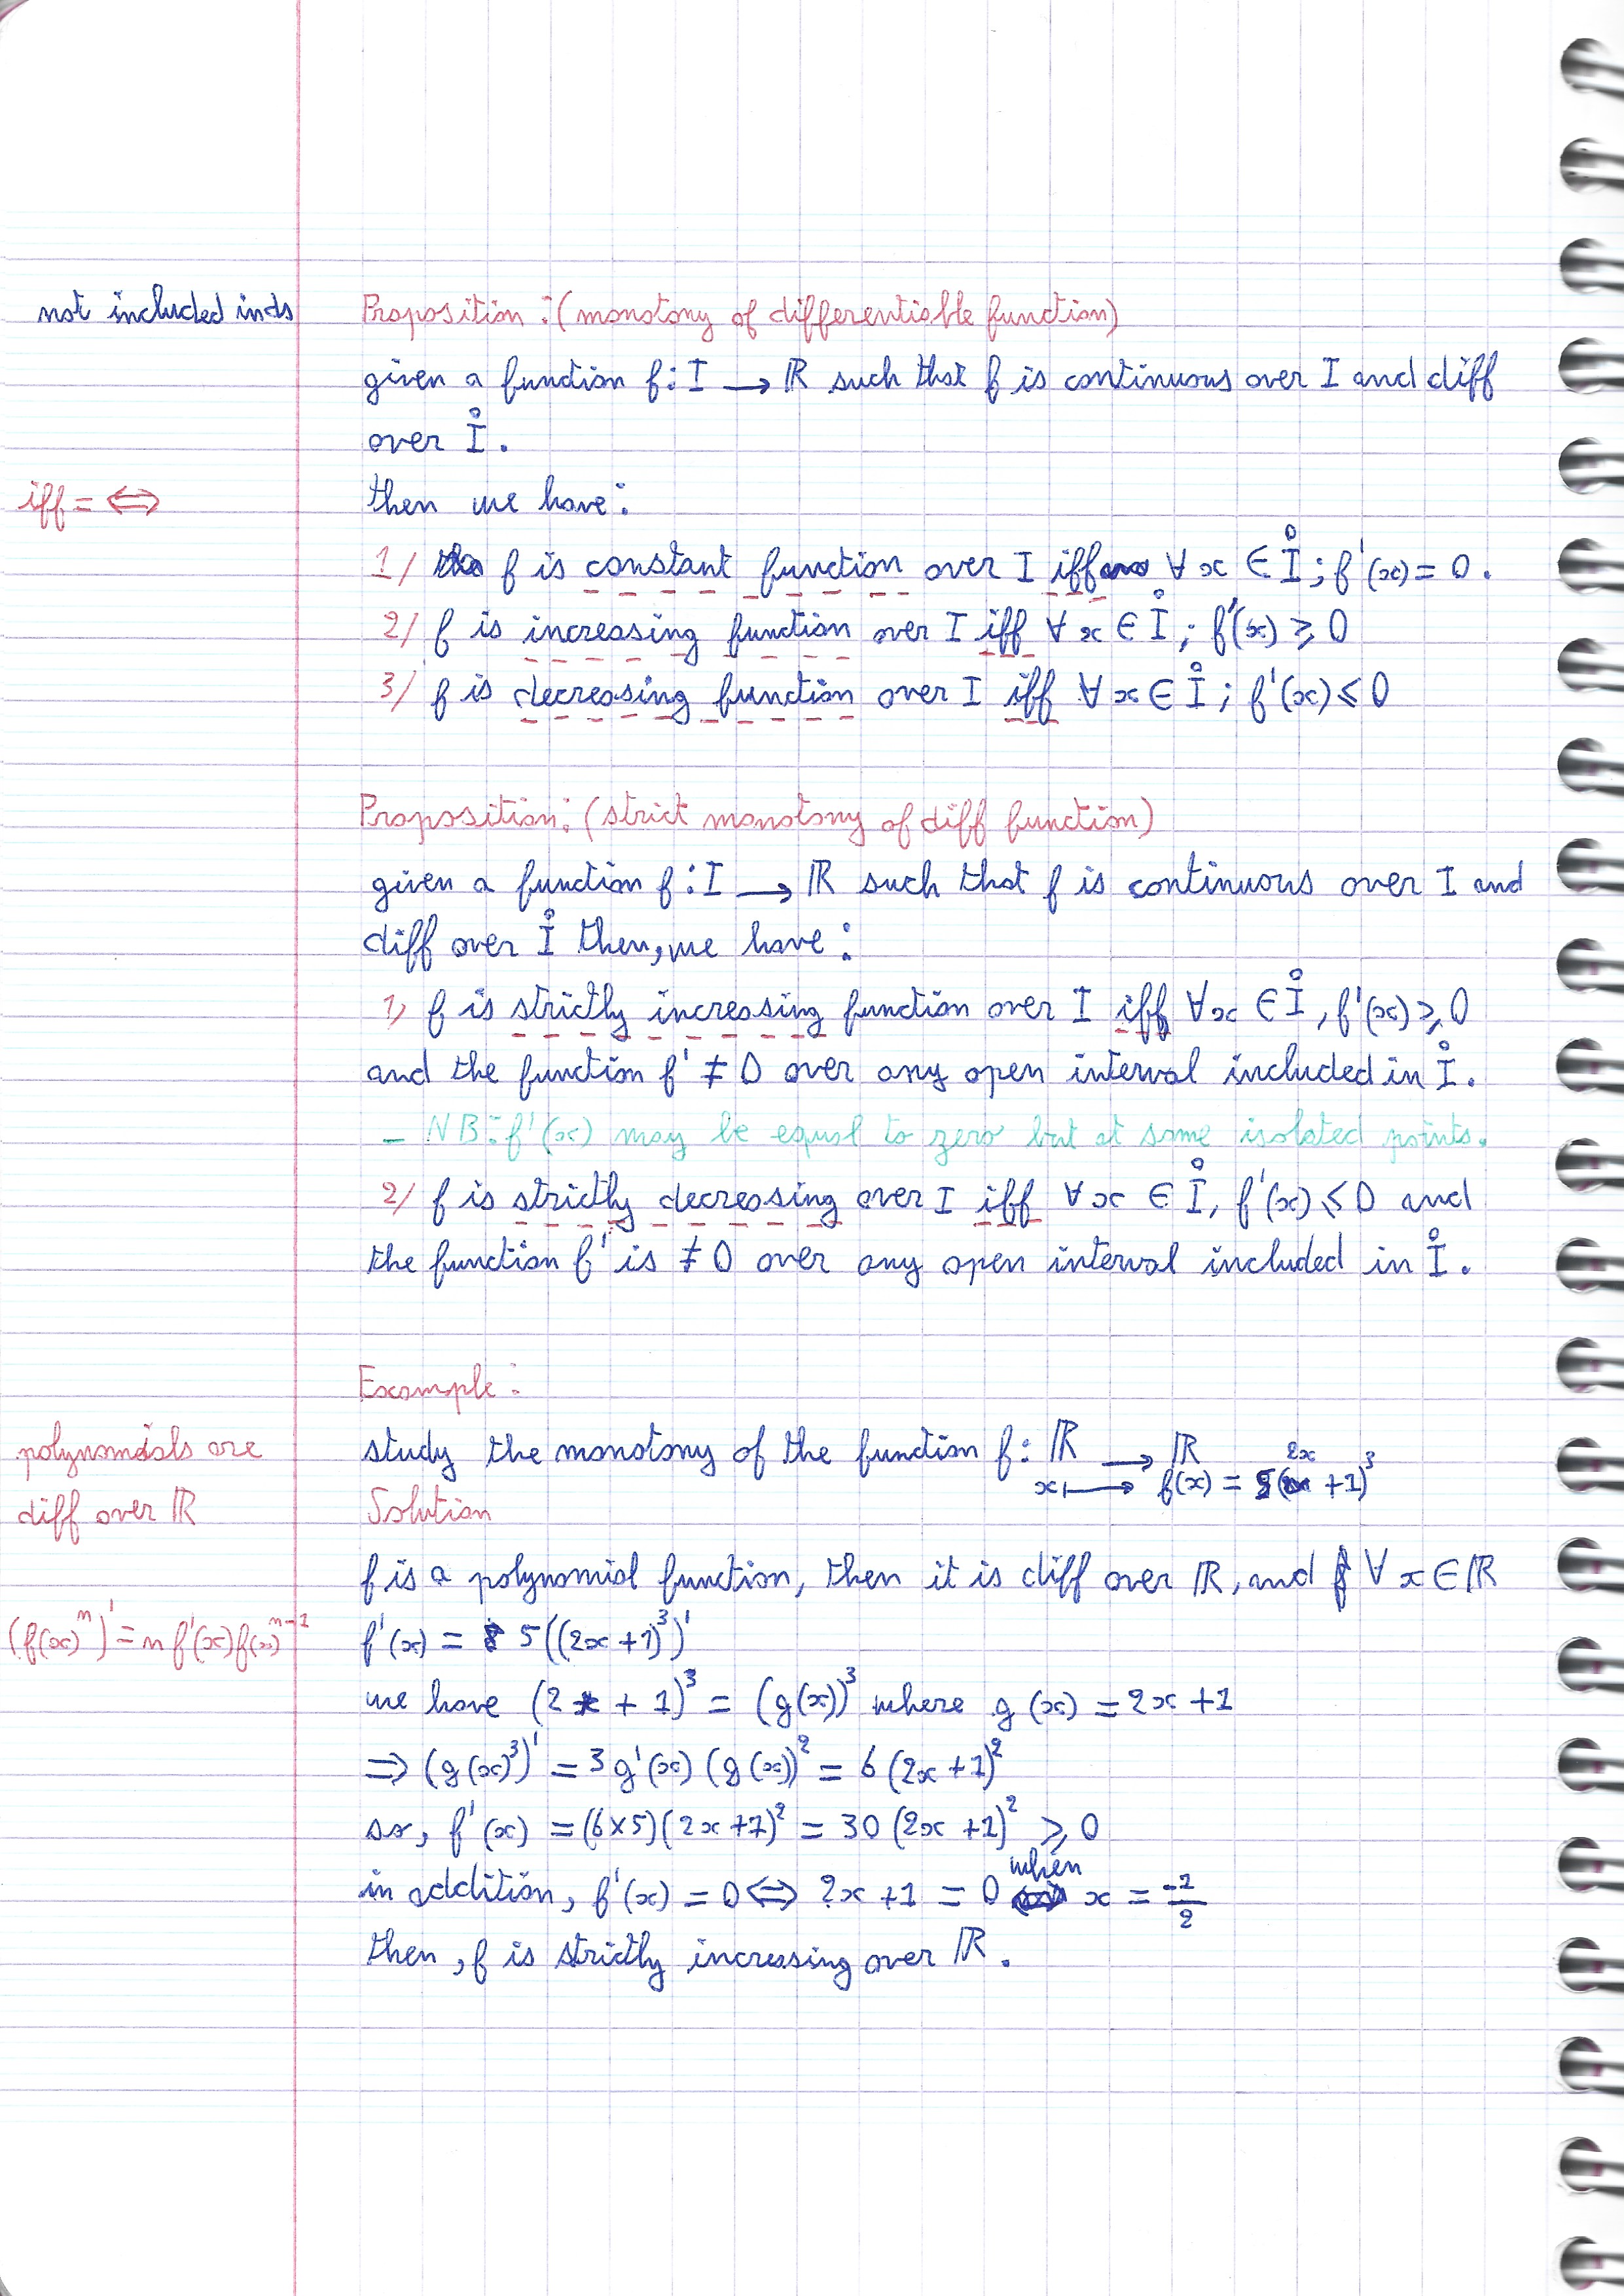 not included in ds
Proposition : (monotony of differentiable function)
given a function f: I → ℝ such that f is continuous over I and diff
over I̊ .
iff = ⇔
then we have :
1/ f is constant function over I iff ∀ x ∈ I̊ ; f'(x) = 0 .
2/ f is increasing function over I iff ∀ x ∈ I̊ ; f'(x) ⩾ 0
3/ f is decreasing function over I iff ∀ x ∈ I̊ ; f'(x) ⩽ 0
Proposition : (strict monotony of diff function)
given a function f : I → ℝ such that f is continuous over I and
diff over I̊ then, we have :
1, f is strictly increasing function over I iff ∀x ∈ I̊ , f'(x) ⩾ 0
and the function f' ≠ 0 over any open interval included in I̊ .
- NB : f'(x) may be equal to zero but at some isolated points.
2/ f is strictly decreasing over I iff ∀x ∈ I̊ , f'(x) ⩽ 0 and
the function f' is ≠ 0 over any open interval included in I̊ .
Example :
polynomials are
diff over ℝ
study the monotony of the function f : ℝ → ℝ
x ⟼ f(x) = 5(2x + 1)³
Solution
f is a polynomial function, then it is diff over ℝ, and ∀ x ∈ ℝ
(f(x)ⁿ)' = n f'(x) f(x)ⁿ⁻¹
f'(x) = 5((2x + 1)³)'
we have (2x + 1)³ = (g(x))³ where g(x) = 2x + 1
⇒ (g(x)³)' = 3 g'(x) (g(x))² = 6 (2x + 1)²
so, f'(x) = (6×5)(2x + 1)² = 30 (2x + 1)² ⩾ 0
in addition, f'(x) = 0 ⇔ 2x + 1 = 0 when x = -1/2
then, f is strictly increasing over ℝ .